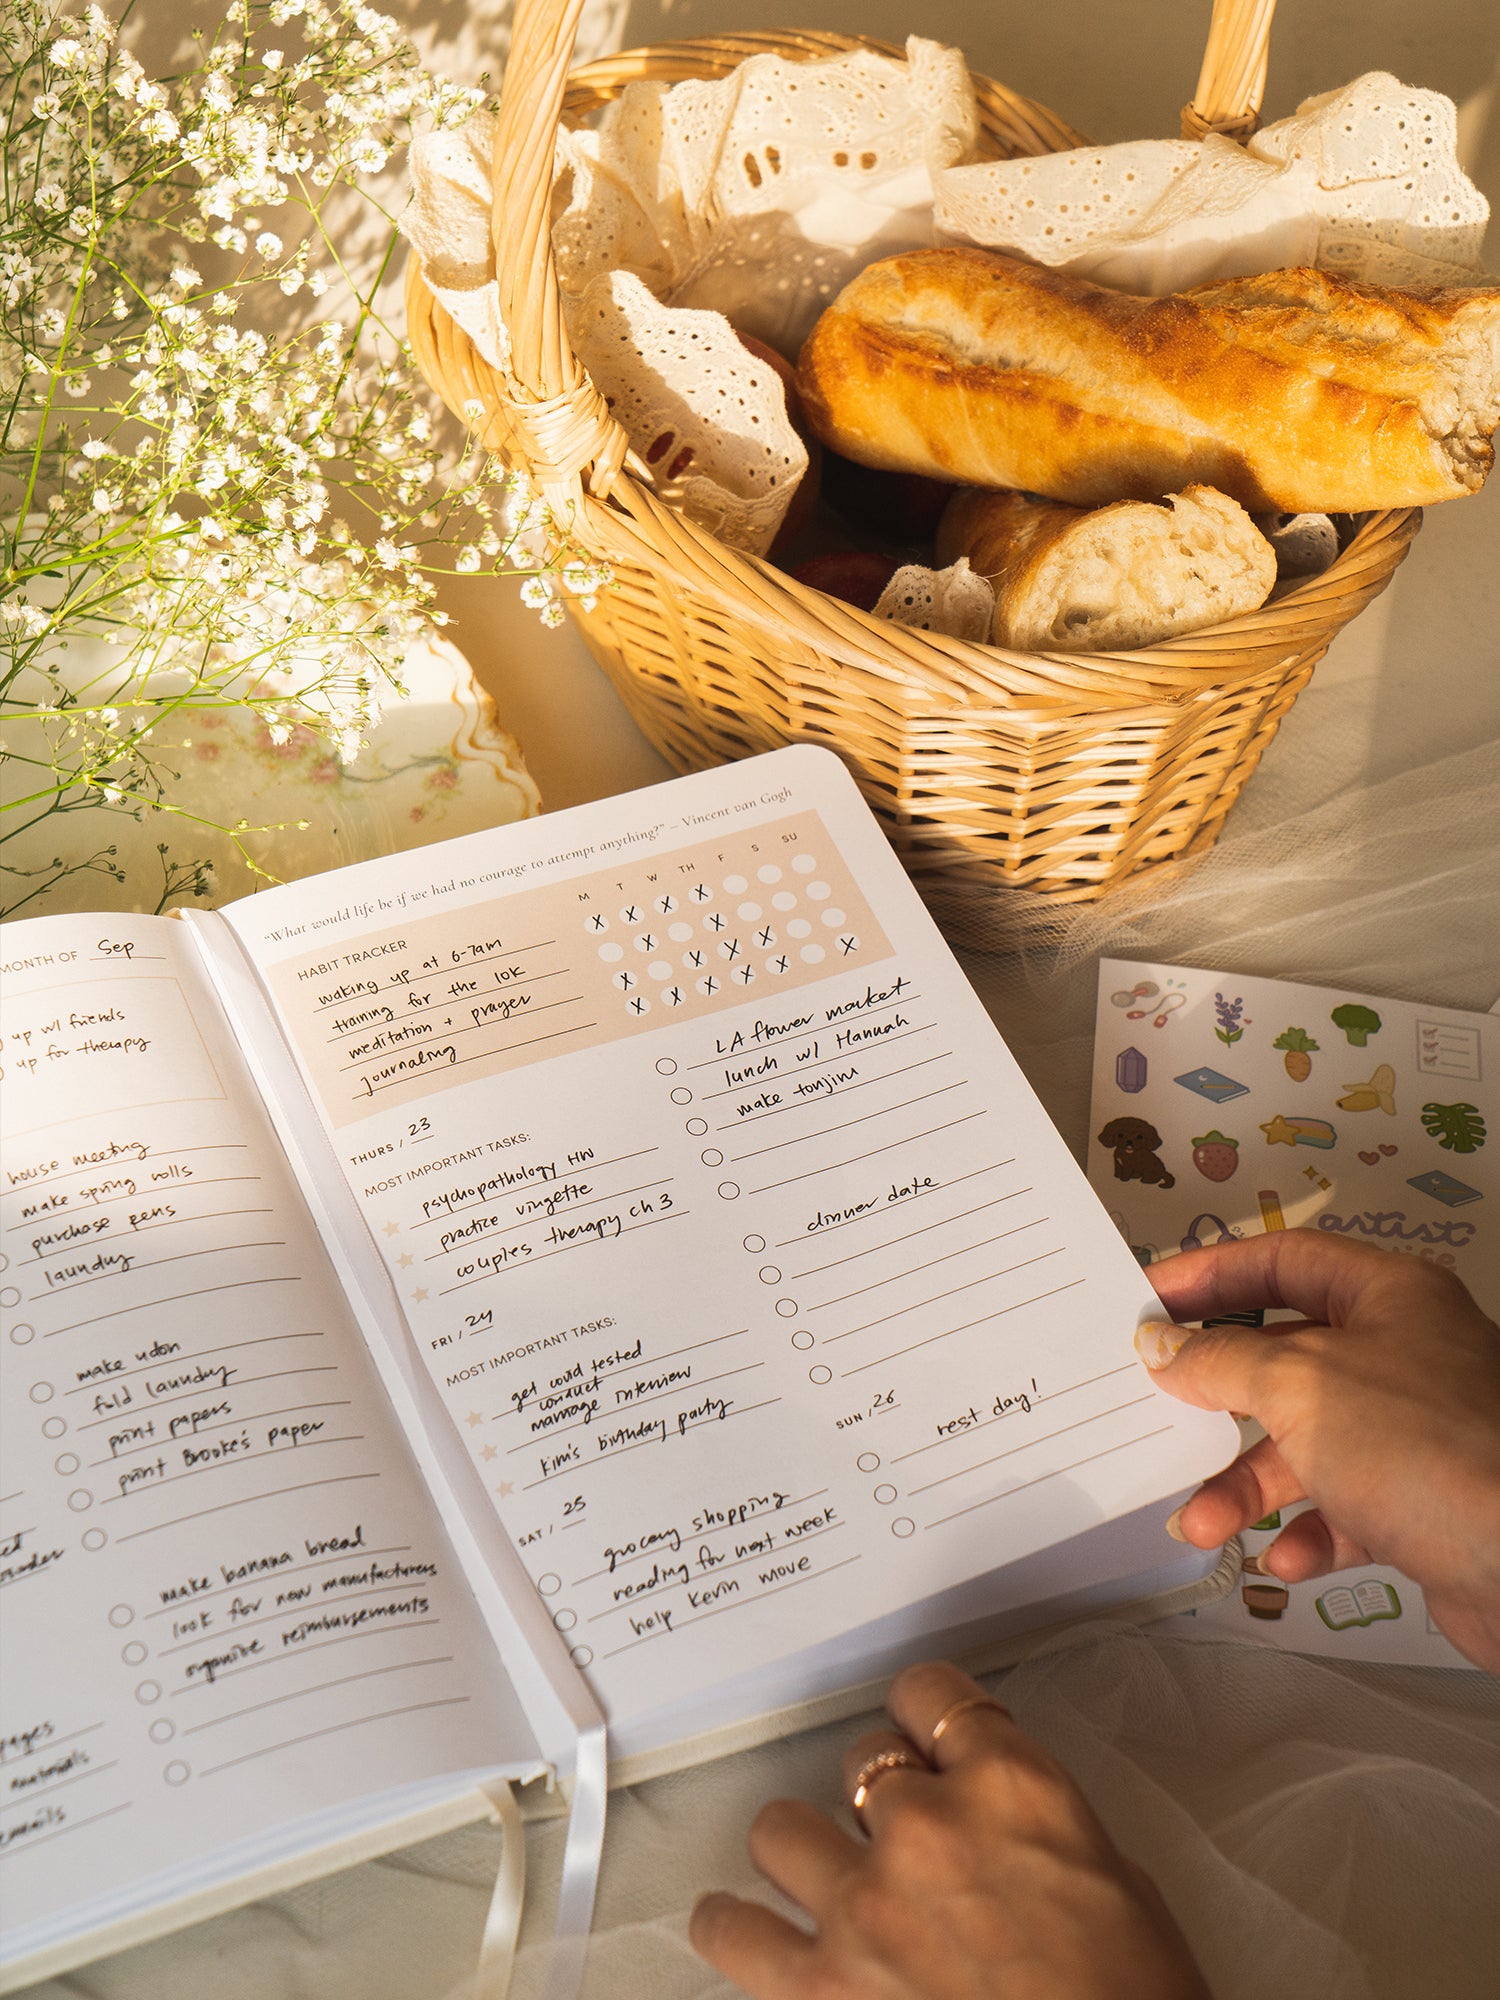 MONTH OF Sep
up w/ friends
up for therapy
house meeting
make spring rolls
purchase pens
laundry
make udon
fold laundry
print papers
print Brooke's paper
make banana bread
look for new manufacturers
organize reimbursements
materials
emails
"What would life be if we had no courage to attempt anything?" – Vincent van Gogh
HABIT TRACKER
M T W TH F S SU
waking up at 6-7am
X X X X
training for the 10K
X X
meditation + prayer
X X X X
journaling
X X X X X X
THURS / 23
MOST IMPORTANT TASKS:
psychopathology HW
practice vingette
couples therapy ch 3
LA flower market
lunch w/ Hannah
make tonjim
FRI / 24
MOST IMPORTANT TASKS:
get covid tested
conduct
marriage interview
kim's birthday party
dinner date
SAT / 25
grocery shopping
reading for next week
help Kevin move
SUN / 26
rest day!
artist
life